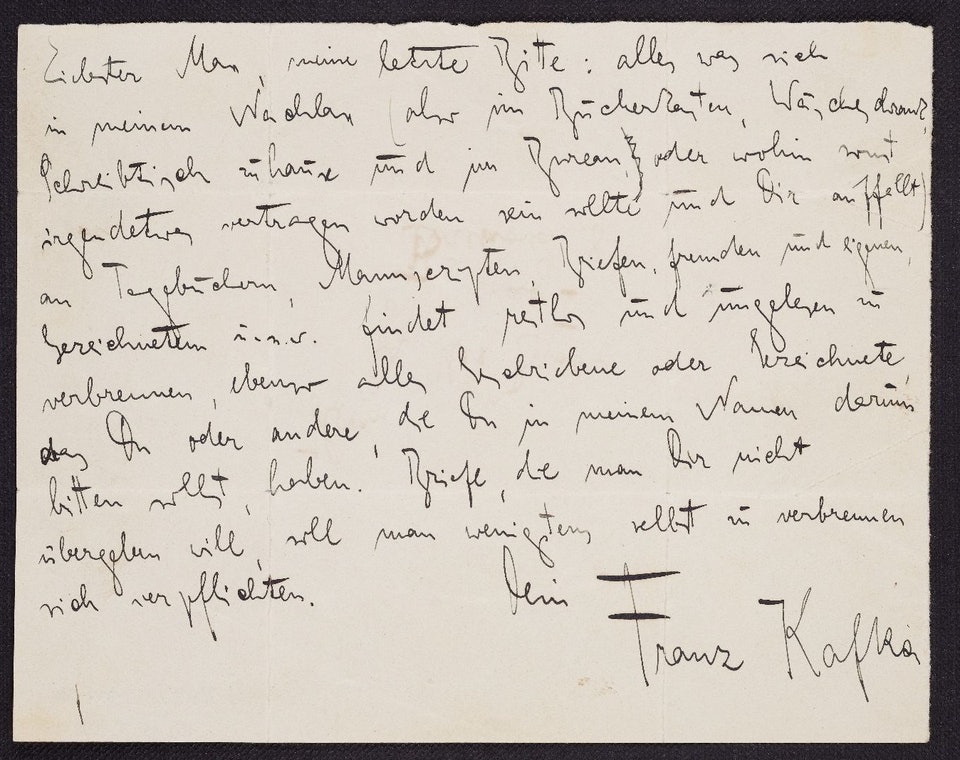 Liebster Max, meine letzte Bitte: alles was sich
in meinem Nachlass (also im Bücherkasten, Wäscheschrank,
Schreibtisch zuhause und im Bureau, oder wohin sonst
irgendetwas vertragen worden sein sollte und Dir auffällt)
an Tagebüchern, Manuscripten, Briefen, fremden und eigenen,
Gezeichnetem u.s.w. findet restlos und ungelesen zu
verbrennen, ebenso alles Geschriebene oder Gezeichnete,
das Du oder andere, die Du in meinem Namen darum
bitten sollst, haben. Briefe, die man Dir nicht
übergeben will, soll man wenigstens selbst zu verbrennen
sich verpflichten.
Dein Franz Kafka